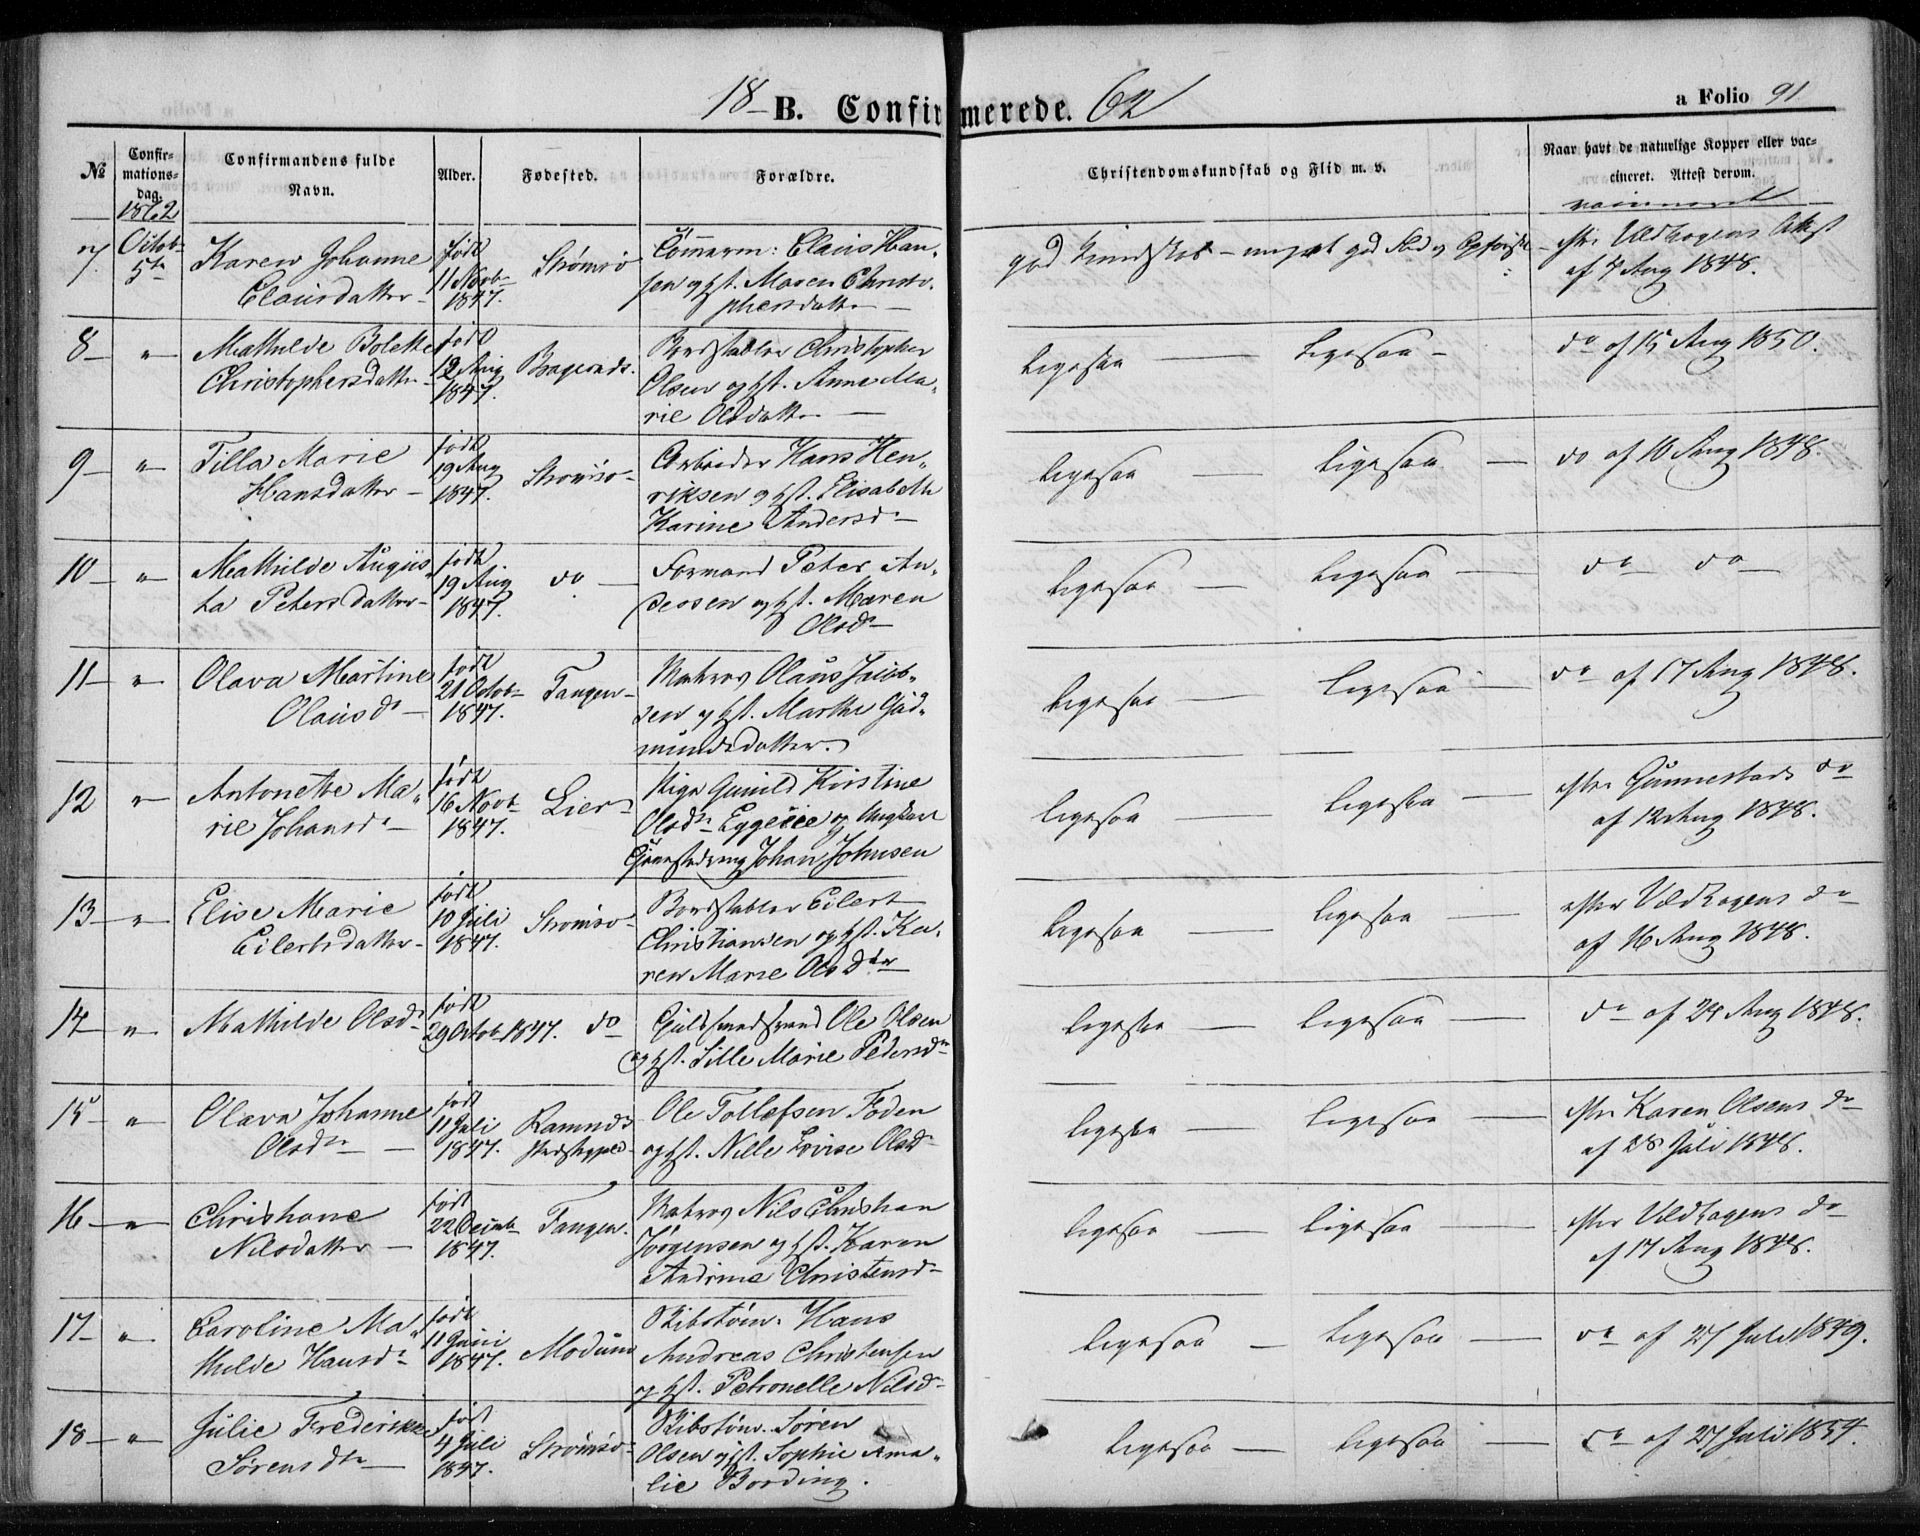 18 B. Confirmerede. 62
a Folio 91
№
Confirmationsdag.
Confirmandens fulde Navn.
Alder.
Fødested.
Forældre.
Christendomskundskab og Flid m. v.
Naar havt de naturlige Kopper eller vaccineret. Attest derom.
1862
vaccineret
7. Octob 5te
Karen Johanne
Clausdatter
født
11 Novb
1847.
Strømsø
Claus Han-
sen og Hst. Maren Christo-
phersdatt
god Kundskab – meget god Flid og Opførsel
efter Uldhagens Attest
af 4 Aug 1848.
8 „
Mathilde Bolette
Christophersdatter
født
12 Aug
1847.
Bragernæs.
Bordstabler Christopher
Olsen og Hst. Anne Ma-
rie Olsdatter
ligesaa ligesaa
do af 15 Aug 1850.
9 „
Tilla Marie
Hansdatter
født
19 Aug
1847.
Strømsø
Arbeider Hans Hen-
riksen og Hst. Elisabeth
Karine Andersd
ligesaa ligesaa
do af 10 Aug 1848.
10 „
Mathilde Augus-
ta Petersdatter
født
19 Aug
1847.
do
Formand Peter An-
dersen og Hst. Maren
Olsd
ligesaa ligesaa
do do
11 „
Olava Martine
Olausd
født
21 Octob
1847.
Tangen
Matros Olaus Jacob-
sen og Hst. Marthe Gud-
mundsdatter.
ligesaa ligesaa
do af 17 Aug 1848.
12 „
Antonette Ma-
rie Johansd
født
16 Novb
1847.
Lier
Pige Gunild Kirstine
Olsdr Eggeeie og Ungkarl
Johan Johnsen
ligesaa ligesaa
efter Gunnestads do
af 12 Aug 1848.
13 „
Elise Marie
Eilertsdatter
født
10 Juli
1847.
Strømsø
Bordstabler Eilert
Christiansen og Hst. Ka-
ren Marie Olsdtr
ligesaa ligesaa
efter Uldhagens do
af 16 Aug 1848.
14 „
Mathilde Olsd
født
29 Octob 1847.
do
Guldsmedsvend Ole Olsen
og Hst. Lille Marie Pedersdr
ligesaa ligesaa
do af 24 Aug 1848.
15 „
Olava Johanne
Olsdtr
født
11 Juli
1847.
Ramnæs
Præstegjeld
Ole Tollefsen Foden
og Hst. Nille Lovise Olsd
ligesaa ligesaa
efter Karen Olsens do
af 28 Juli 1848.
16 „
Christiane
Nilsdatter
født
22 Decemb
1847.
Tangen.
Matros Nils Christian
Jørgensen og Hst. Karen
Andrine Christensd
ligesaa ligesaa
efter Uldhagens do
af 17 Aug 1848.
17 „
Caroline Ma-
thilde Hansd
født
11 Juni
1847.
Modum
Skibstøm. Hans
Andreas Christensen
og Hst. Petronelle Nilsd
ligesaa ligesaa
do af 27 Juli 1849.
18 „
Julie Frederikke
Sørensdtr
født
4 Juli
1847.
Strømsø
Skibstøm. Søren
Olsen og Hst. Sophie Ama-
lie Bording.
ligesaa ligesaa
do af 27 Juli 1854.